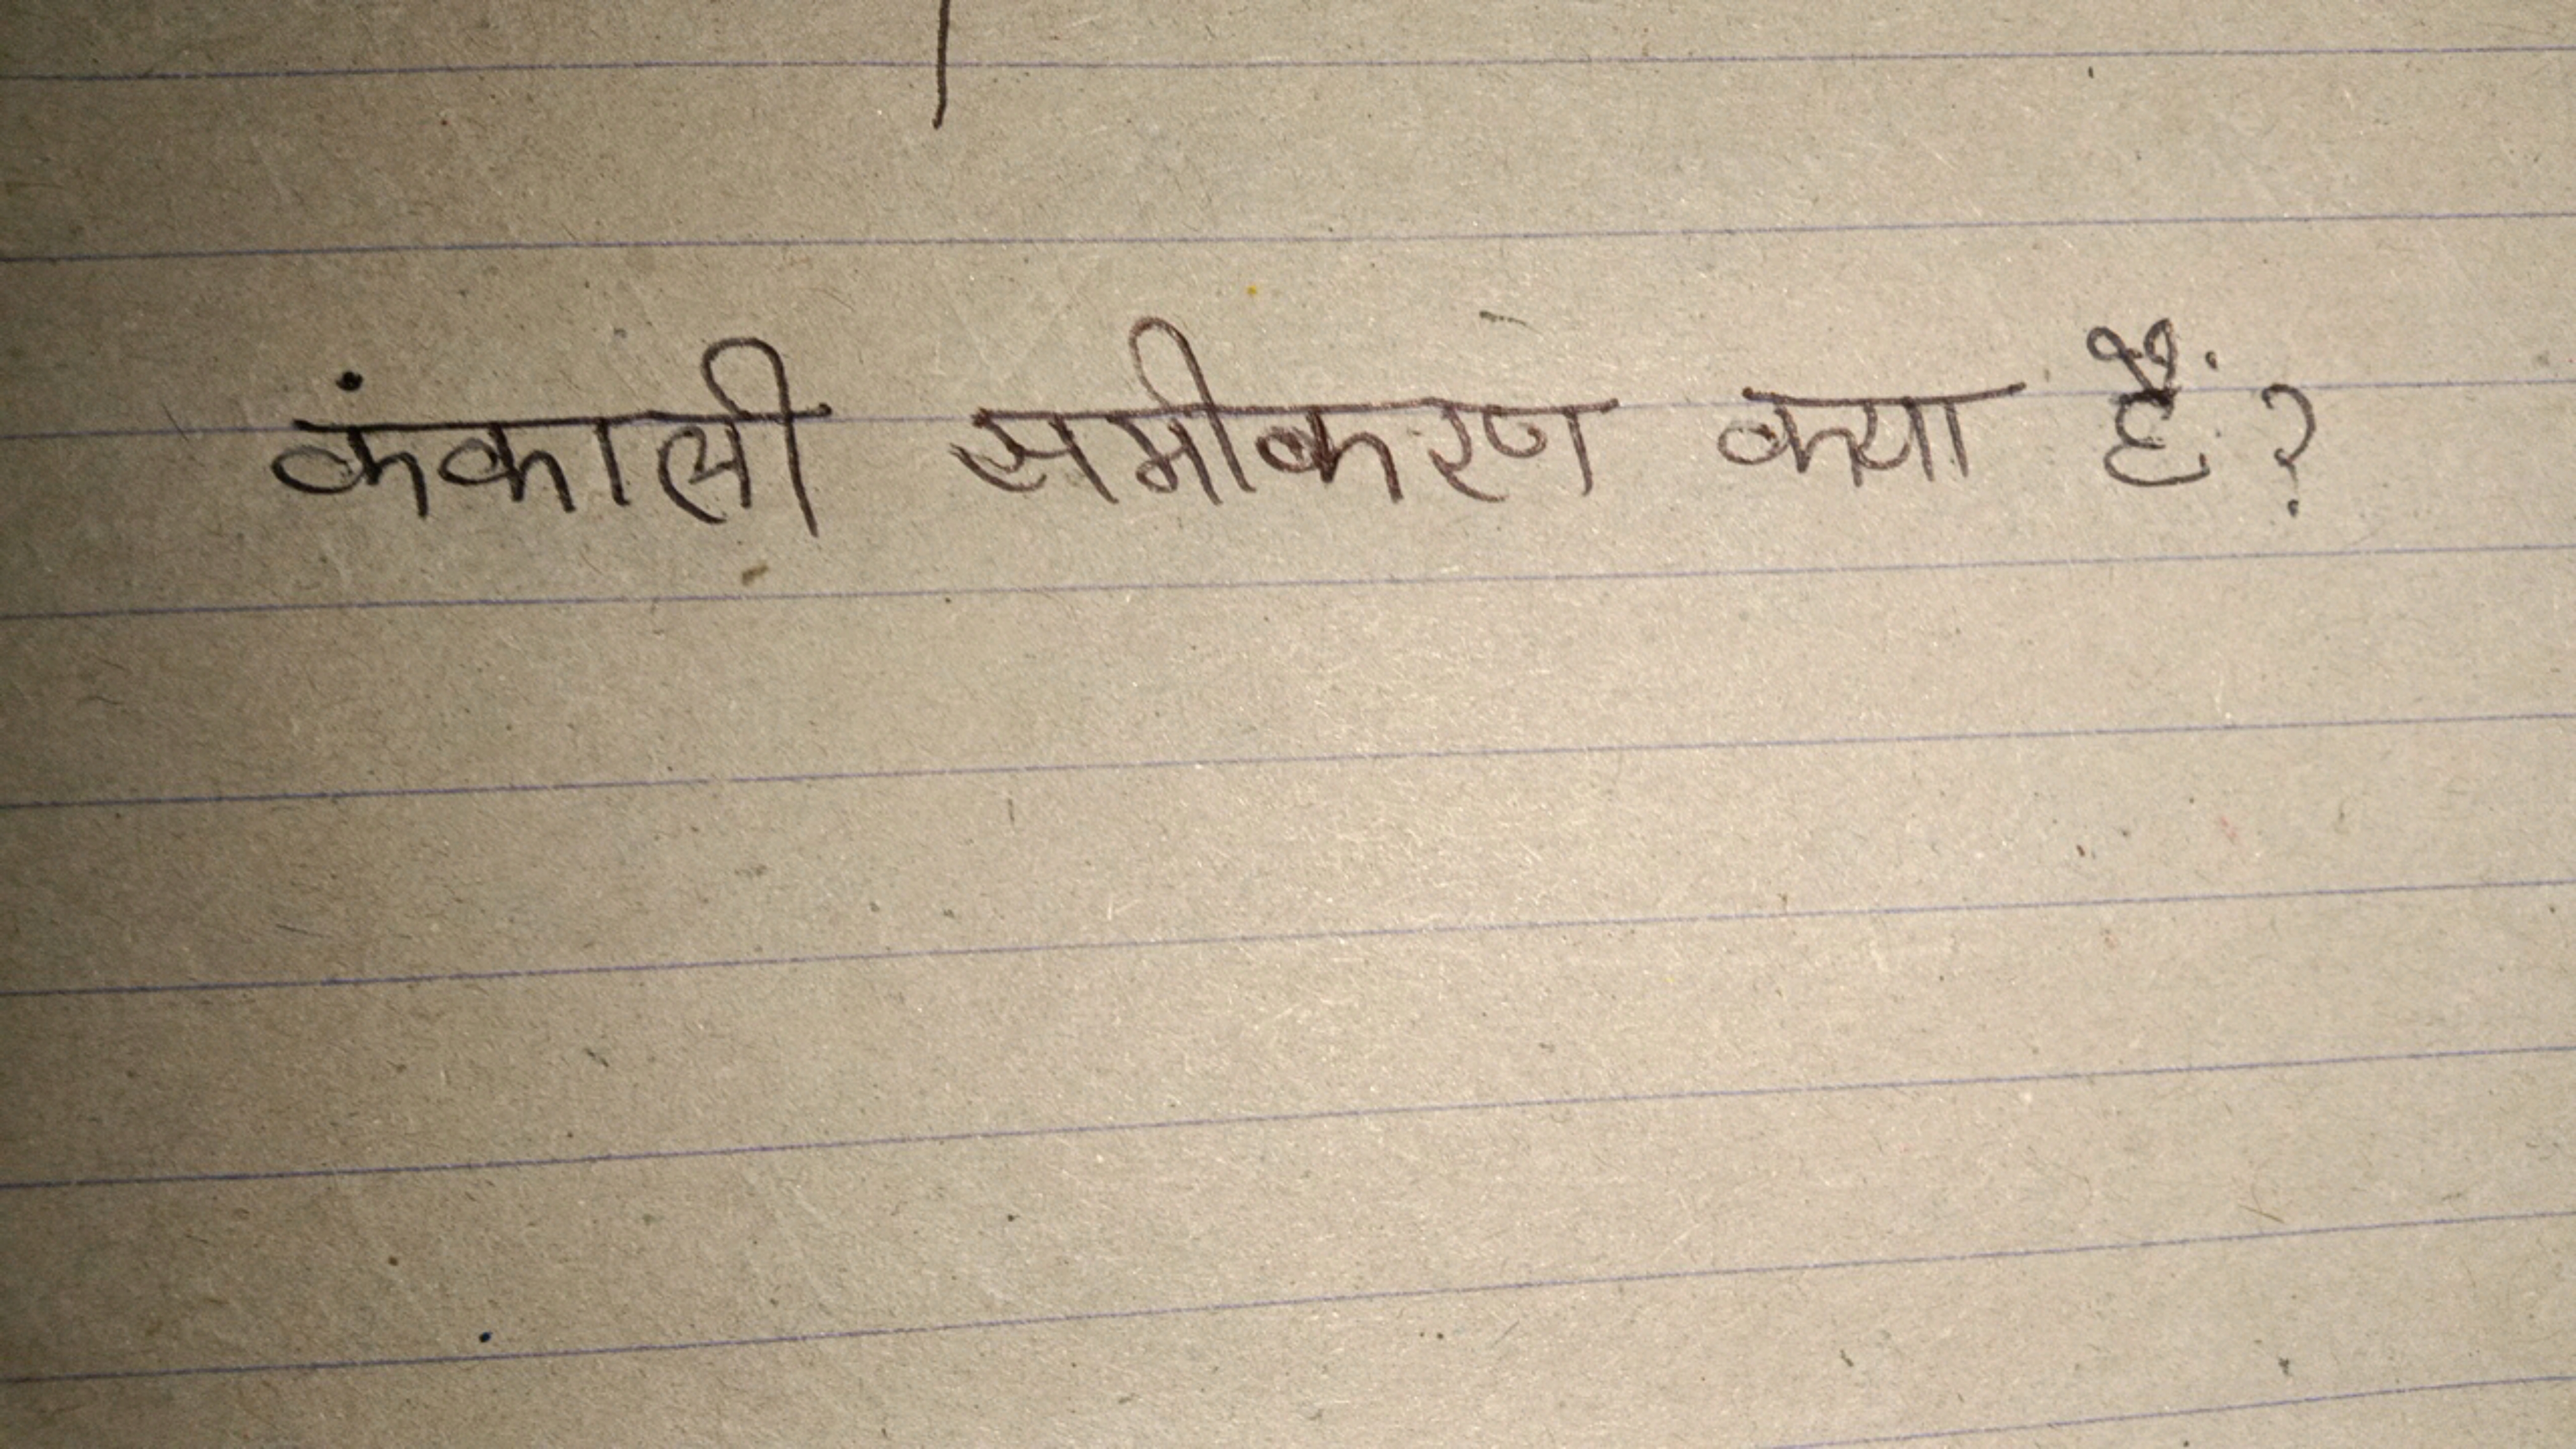 कंकाली समीकरण क्या हैं?